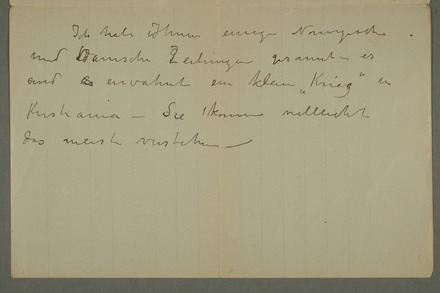 Ich habe Ihnen einige Norwegische
und Dänische Zeitungen gesannt – es
sind erwahnt ein klein „Krieg" in
Kristiania – Sie können vielleicht
das meiste verstehen –